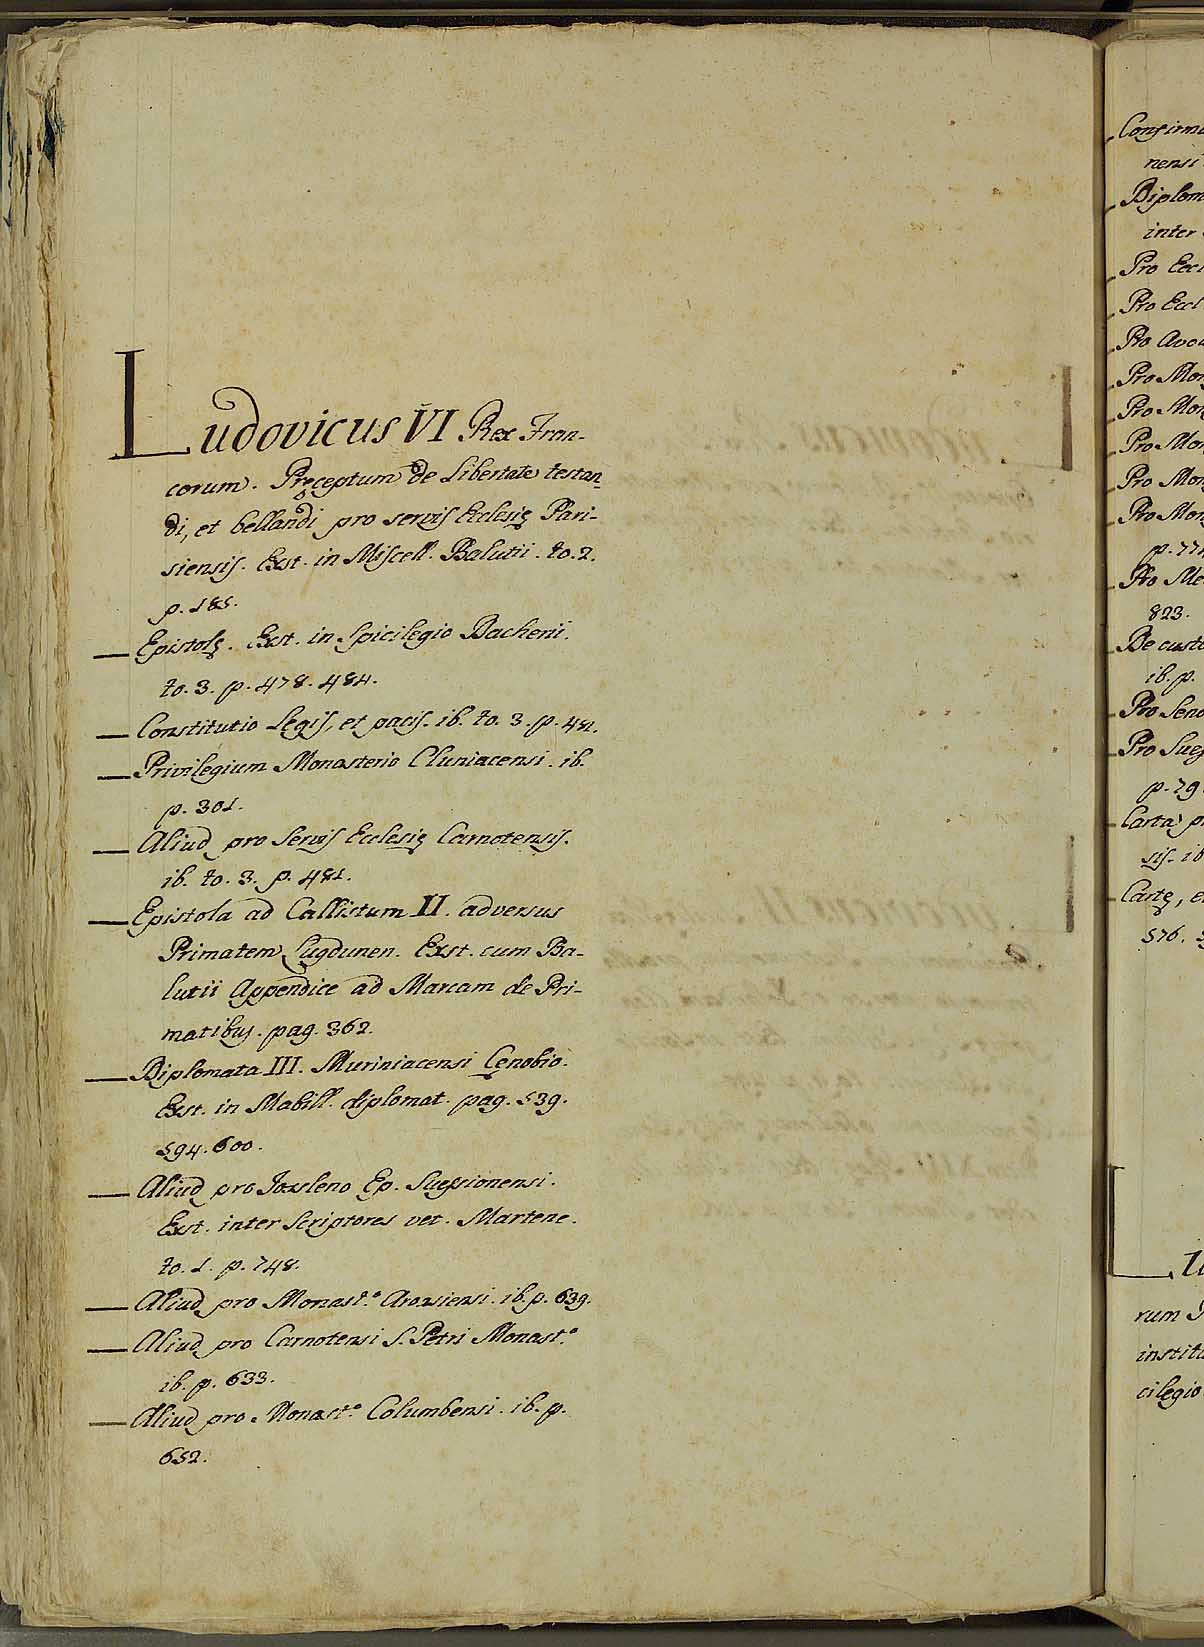 Ludovicus VI Rex Fran-
corum. Pręceptum de Libertate testan-
di, et bellandi pro servis Ecclesię Pari-
siensis. Exst. in Miscell. Balutii. to. 2.
p. 185.
— Epistolę. Exst. in Spicilegio Dacherii.
to. 3. p. 478. 484.
— Constitutio Legis, et pacis. ib. to. 3. p. 481.
— Privilegium Monasterio Cluniacensi. ib.
p. 301.
— Aliud pro Servis Ecclesię Carnotensis.
ib. to. 3. p. 481.
— Epistola ad Callistum II. adversus
Primatem Lugdunen. Exst. cum Ba-
lutii Appendice ad Marcam de Pri-
matibus. pag. 362.
— Diplomata III. Muriniacensi Cęnobio.
Exst. in Mabill. diplomat. pag. 539.
594. 600.
— Aliud pro Jozleno Ep. Suessionensi.
Exst. inter Scriptores vet. Martene.
to. 1. p. 748.
— Aliud pro Monast.º Aroasiensi. ib. p. 639.
— Aliud pro Carnotensi S. Petri Monast.º
ib. p. 633.
— Aliud pro Monast.º Columbensi. ib. p.
652.
Confirma
nensi
Diplom
inter
Pro Eccl
Pro Eccl
Pro Avou
Pro Mon
Pro Mon
Pro Mon
Pro Mon
Pro Mon
p. 77
Pro Me
823.
De custo
ib. p.
Pro Seno
Pro Sueg
p. 79
Carta p
sis. ib
Cartę, e
576.
rum
institu
cilegio